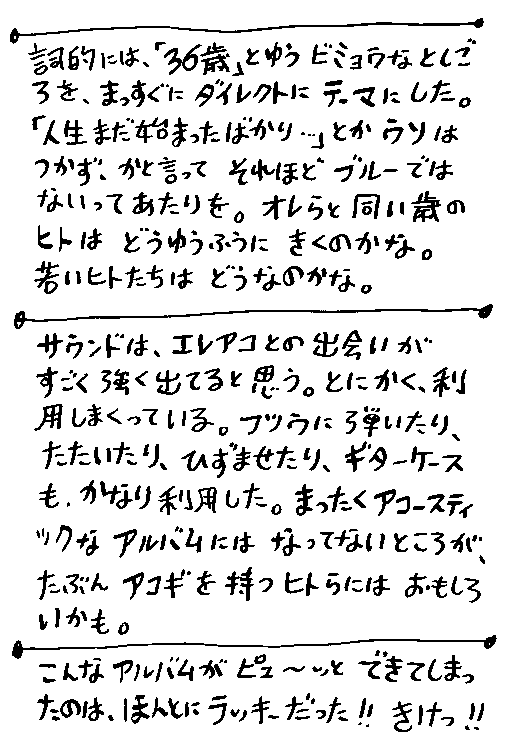 詞的には、「36歳」とゆうビミョウなとしご
ろを、まっすぐにダイレクトにテーマにした。
「人生まだ始まったばかり…」とかウソは
つかず、かと言ってそれほどブルーでは
ないってあたりを。オレらと同い歳の
ヒトはどうゆうふうにきくのかな。
若いヒトたちはどうなのかな。
サウンドは、エレアコとの出会いが
すごく強く出てると思う。とにかく、利
用しまくっている。フツウに弾いたり、
たたいたり、ひずませたり、ギターケース
も、かなり利用した。まったくアコースティ
ックなアルバムにはなってないところが、
たぶんアコギを持つヒトらにはおもしろ
いかも。
こんなアルバムがピュ〜ッとできてしまっ
たのは、ほんとにラッキーだった!!きけっ!!